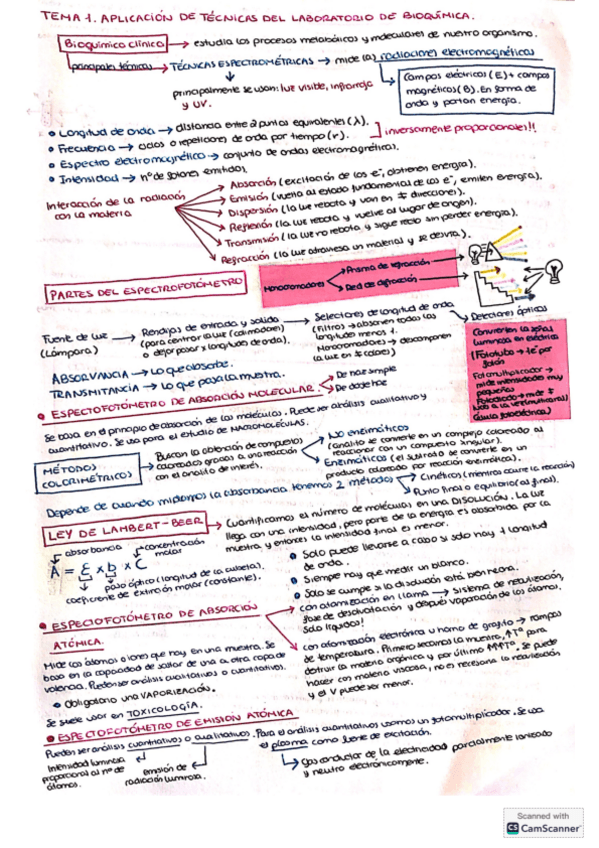 TEMA 1. APLICACIÓN DE TÉCNICAS DEL LABORATORIO DE BIOQUÍMICA.
Bioquímica clínica → estudia los procesos metabólicos y moleculares de nuestro organismo.
principales técnicas → TÉCNICAS ESPECTROMÉTRICAS → mide las radiaciones electromagnéticas
principalmente se usan: luz visible, infrarroja
y UV.
Campos eléctricos (E) + campos
magnéticos (B). En forma de
onda y portan energía.
• Longitud de onda → distancia entre 2 puntos equivalentes (λ).
• Frecuencia → ciclos o repeticiones de onda por tiempo (r).
] inversamente proporcionales!!
• Espectro electromagnético → conjunto de ondas electromagnéticas.
• Intensidad → nº de fotones emitidos.
Interacción de la radiación
con la materia
Absorción (excitación de los e⁻, obtienen energía).
Emisión (vuelta al estado fundamental de los e⁻, emiten energía).
Dispersión (la luz rebota y van en ≠ direcciones).
Reflexión (la luz rebota y vuelve al lugar de origen).
Transmisión (la luz no rebota y sigue recto sin perder energía).
Refracción (la luz atraviesa un material y se desvía).
PARTES DEL ESPECTROFOTÓMETRO
Monocromadores
Prisma de refracción
Red de difracción
Fuente de luz
(Lámpara)
→ Rendijas de entrada y salida
(para centrar la luz (colimadores)
o dejar pasar x longitudes de onda).
→ Selectores de longitud de onda
(Filtros → absorben todas las
longitudes menos 1.
Monocromadores → descomponen
la luz en ≠ colores)
→ Detectores ópticos
Convierten la señal
luminosa en eléctrica
(Fototubo → 1e⁻ por
fotón
Fotomultiplicador →
mide intensidades muy
pequeñas
Fotodiodo → mide ≠
ABSORVANCIA → Lo que absorbe.
TRANSMITANCIA → Lo que pasa la muestra.
• ESPECTOFOTÓMETRO DE ABSORCIÓN MOLECULAR.
De haz simple
De doble haz
Se basa en el principio de absorción de las moléculas. Puede ser análisis cualitativo y
cuantitativo. Se usa para el estudio de MACROMOLÉCULAS.
MÉTODOS
COLORIMÉTRICOS
→ Buscan la obtención de compuestos
coloreados gracias a una reacción
con el analito de interés.
No enzimáticos
(analito se convierte en un complejo coloreado al
reaccionar con un compuesto singular).
Enzimáticos (el sustrato se convierte en un
producto coloreado por reacción enzimática).
Depende de cuando midamos la absorbancia tenemos 2 métodos
Cinéticos (mientras ocurre la reacción)
Punto final o equilibrio (al final).
LEY DE LAMBERT-BEER
→ Cuantificamos el número de moléculas en una DISOLUCIÓN. La luz
llega con una intensidad, pero parte de la energía es absorbida por la
muestra, y entonces la intensidad final es menor.
absorbancia
concentración
molar
A = Ɛ x b x C
paso óptico (longitud de la cubeta).
coeficiente de extinción molar (constante).
• Solo puede llevarse a cabo si solo hay 1 longitud
de onda.
• Siempre hay que medir un blanco.
• Solo se cumple si la disolución está bien hecha.
• ESPECTOFOTÓMETRO DE ABSORCIÓN
ATÓMICA.
con atomización en llama → sistema de nebulización,
fase de desolvatación y después vaporización de los átomos.
Solo líquido!
con atomización electrónica u horno de grafito → rampas
de temperatura. Primero secamos la muestra, ↑Tª para
destruir la materia orgánica y por último ↑↑↑Tª. Se puede
hacer con materia viscosa, no es necesaria la nebulización
y el V puede ser menor.
Mide los átomos o iones que hay en una muestra. Se
basa en la capacidad de saltar de una a otra capa de
valencia. Pueden ser análisis cualitativos o cuantitativos.
• Obligatorio una VAPORIZACIÓN.
Se suele usar en TOXICOLOGÍA.
• ESPECTOFOTÓMETRO DE EMISIÓN ATÓMICA
Pueden ser análisis cuantitativos o cualitativos. Para el análisis cuantitativo usamos un fotomultiplicador. Se usa
el plasma como fuente de excitación.
Intensidad luminosa
proporcional al nº de
átomos.
emisión de
radiación luminosa.
gas conductor de la electricidad parcialmente ionizado
y neutro electrónicamente.
Scanned with
CS CamScanner